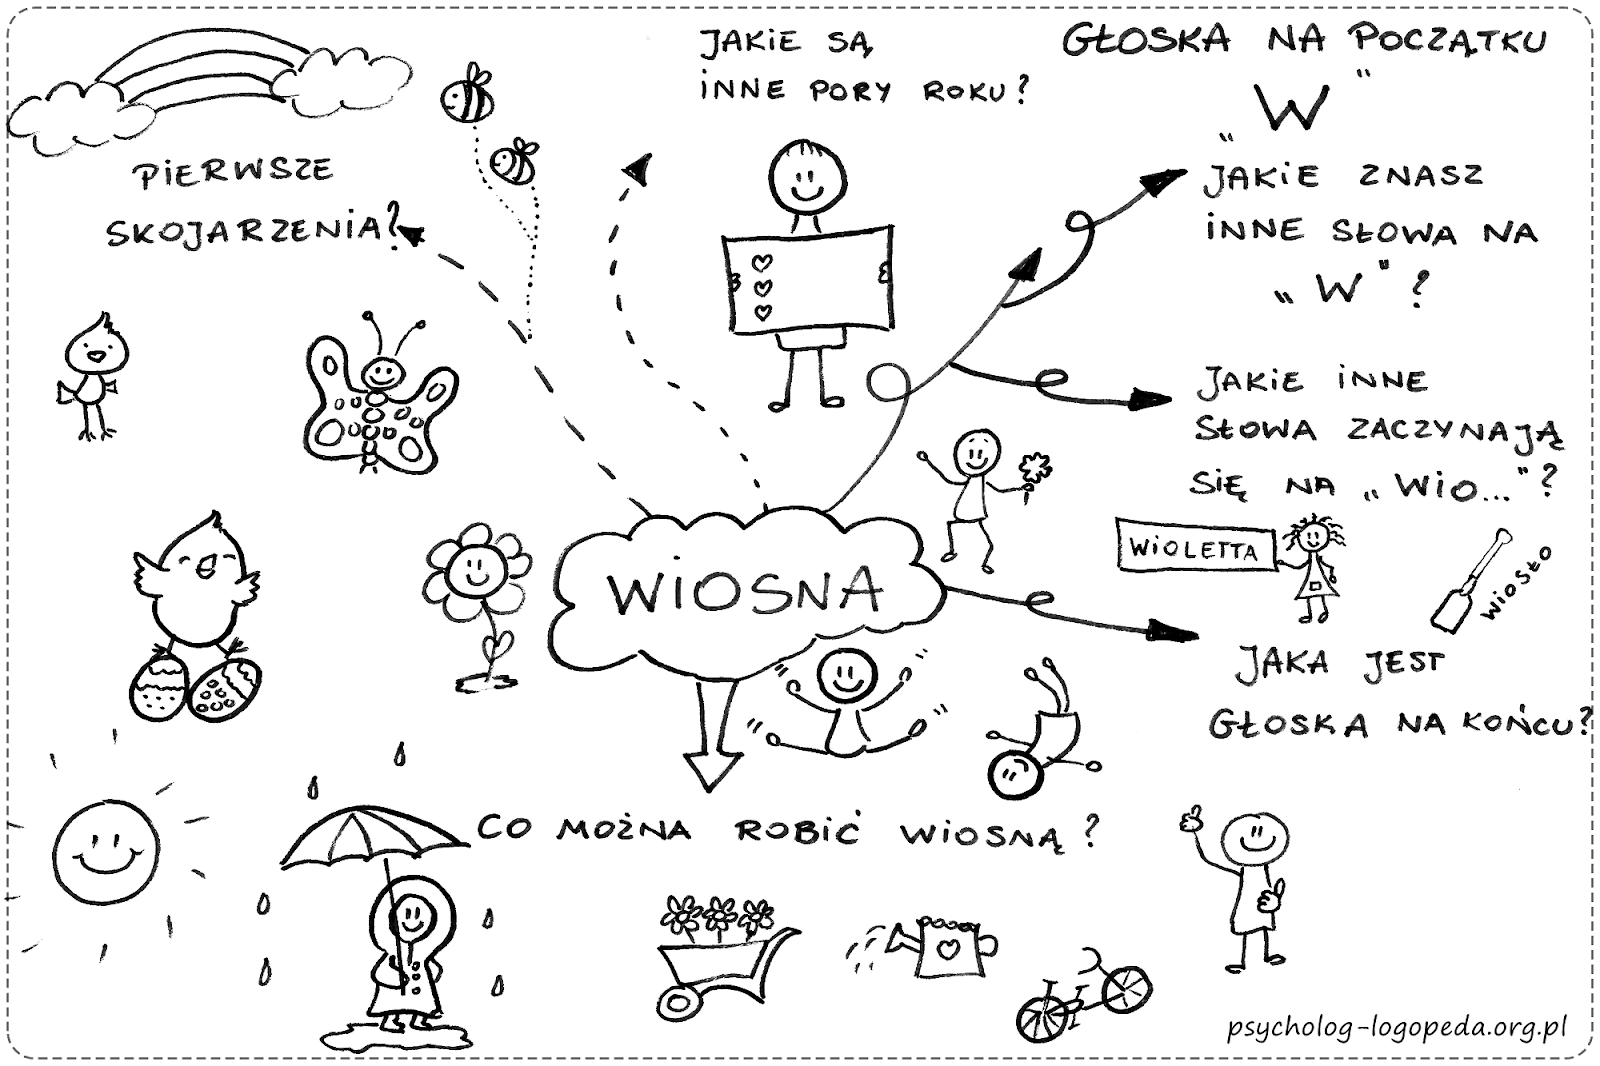 JAKIE SĄ
INNE PORY ROKU?
GŁOSKA NA POCZĄTKU
„W”
PIERWSZE
SKOJARZENIA?
JAKIE ZNASZ
INNE SŁOWA NA
„W”?
JAKIE INNE
SŁOWA ZACZYNAJĄ
SIĘ NA „WIO...”?
WIOLETTA
WIOSŁO
WIOSNA
JAKA JEST
GŁOSKA NA KOŃCU?
CO MOŻNA ROBIĆ WIOSNĄ?
psycholog-logopeda.org.pl